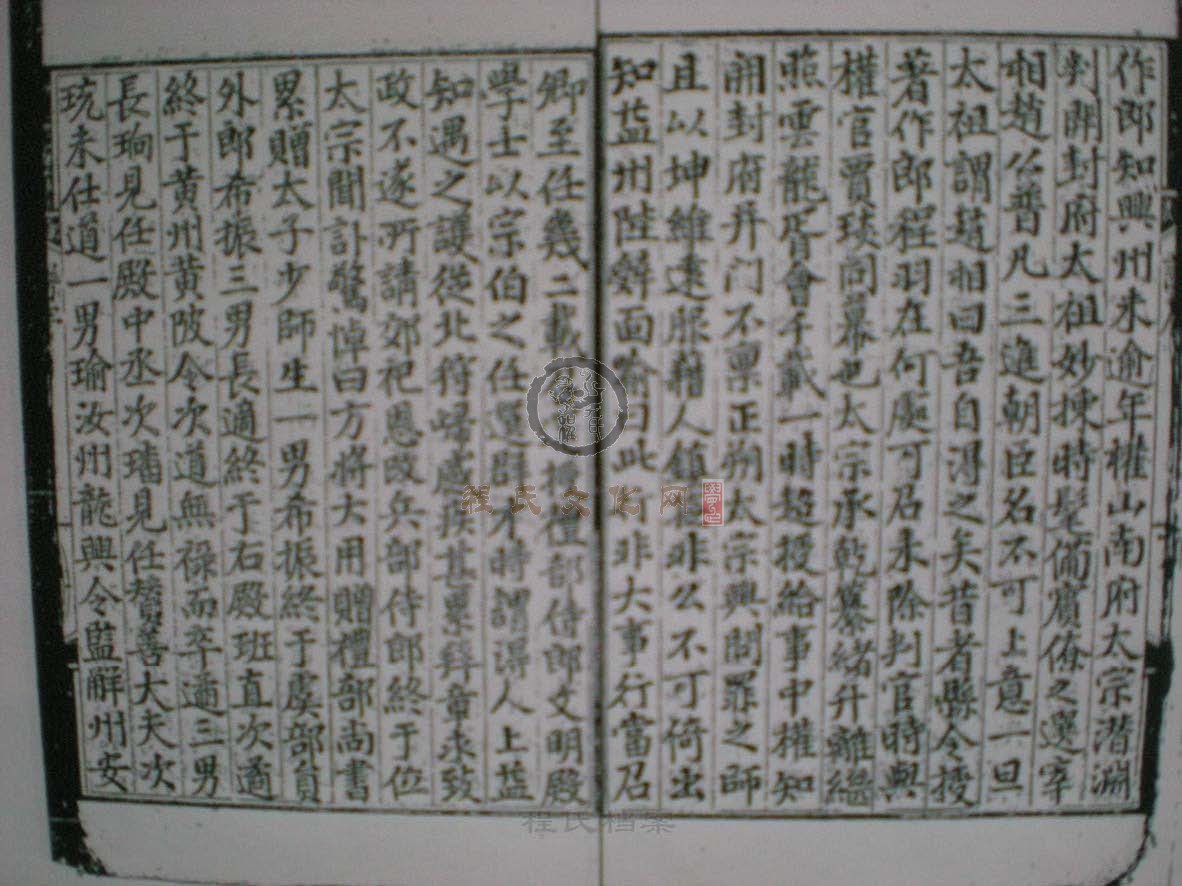 作郎知興州未逾年權山南府太宗潛淵
判開封府太祖妙揀時髦備賓僚之選宰
相趙公普凡三進朝臣名不可上意一旦
太祖謂趙相曰吾自得之矣昔者縣令授
著作郎程羽在何處可召來除判官時與
權官賈琰同幕也太宗承乾纂緒升離繼
照雲龍胥會千載一時超授給事中權知
開封府并門不稟正朔太宗興問罪之師
且以坤維遠服藉人鎮 非公不可倚出
知益州陛辭面諭曰此行非大事行當召
卿至任幾二載 授禮部侍郎文明殿
學士以宗伯之任選群才時謂得人上益
知遇之護從北狩歸感疾甚累拜章求致
政不遂所請郊祀恩改兵部侍郎終于位
太宗聞訃驚悼曰方將大用贈禮部尚書
累贈太子少師生一男希振終于虞部員
外郎希振三男長適終于右殿班直次遹
終于黃州黃陂令次道無祿而卒遹三男
長珦見任殿中丞次璠見任贊善大夫次
琉未仕道一男瑜汝州龍興令監解州安
程氏文化网
程氏档案